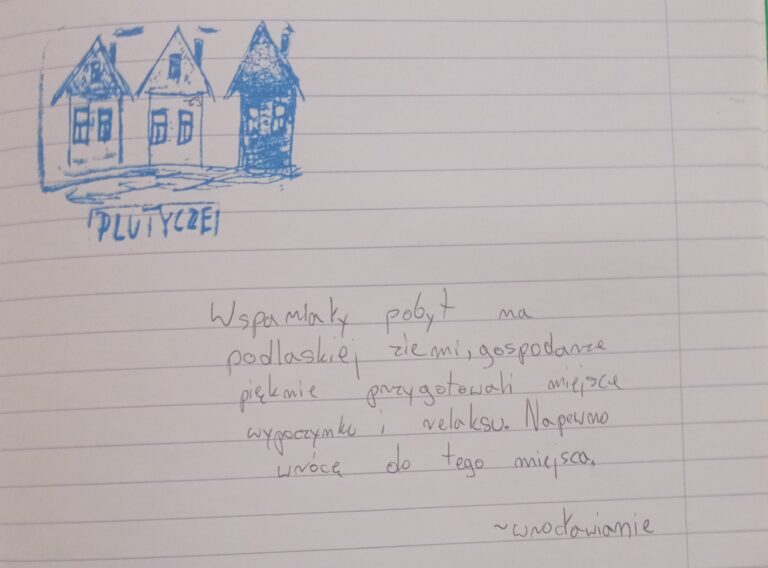 PLUTYCZE
Wspaniały pobyt na
podlaskiej ziemi, gospodarze
pięknie przygotowali miejsce
wypoczynku i relaksu. Napewno
wrócę do tego miejsca.
~wrocławianie